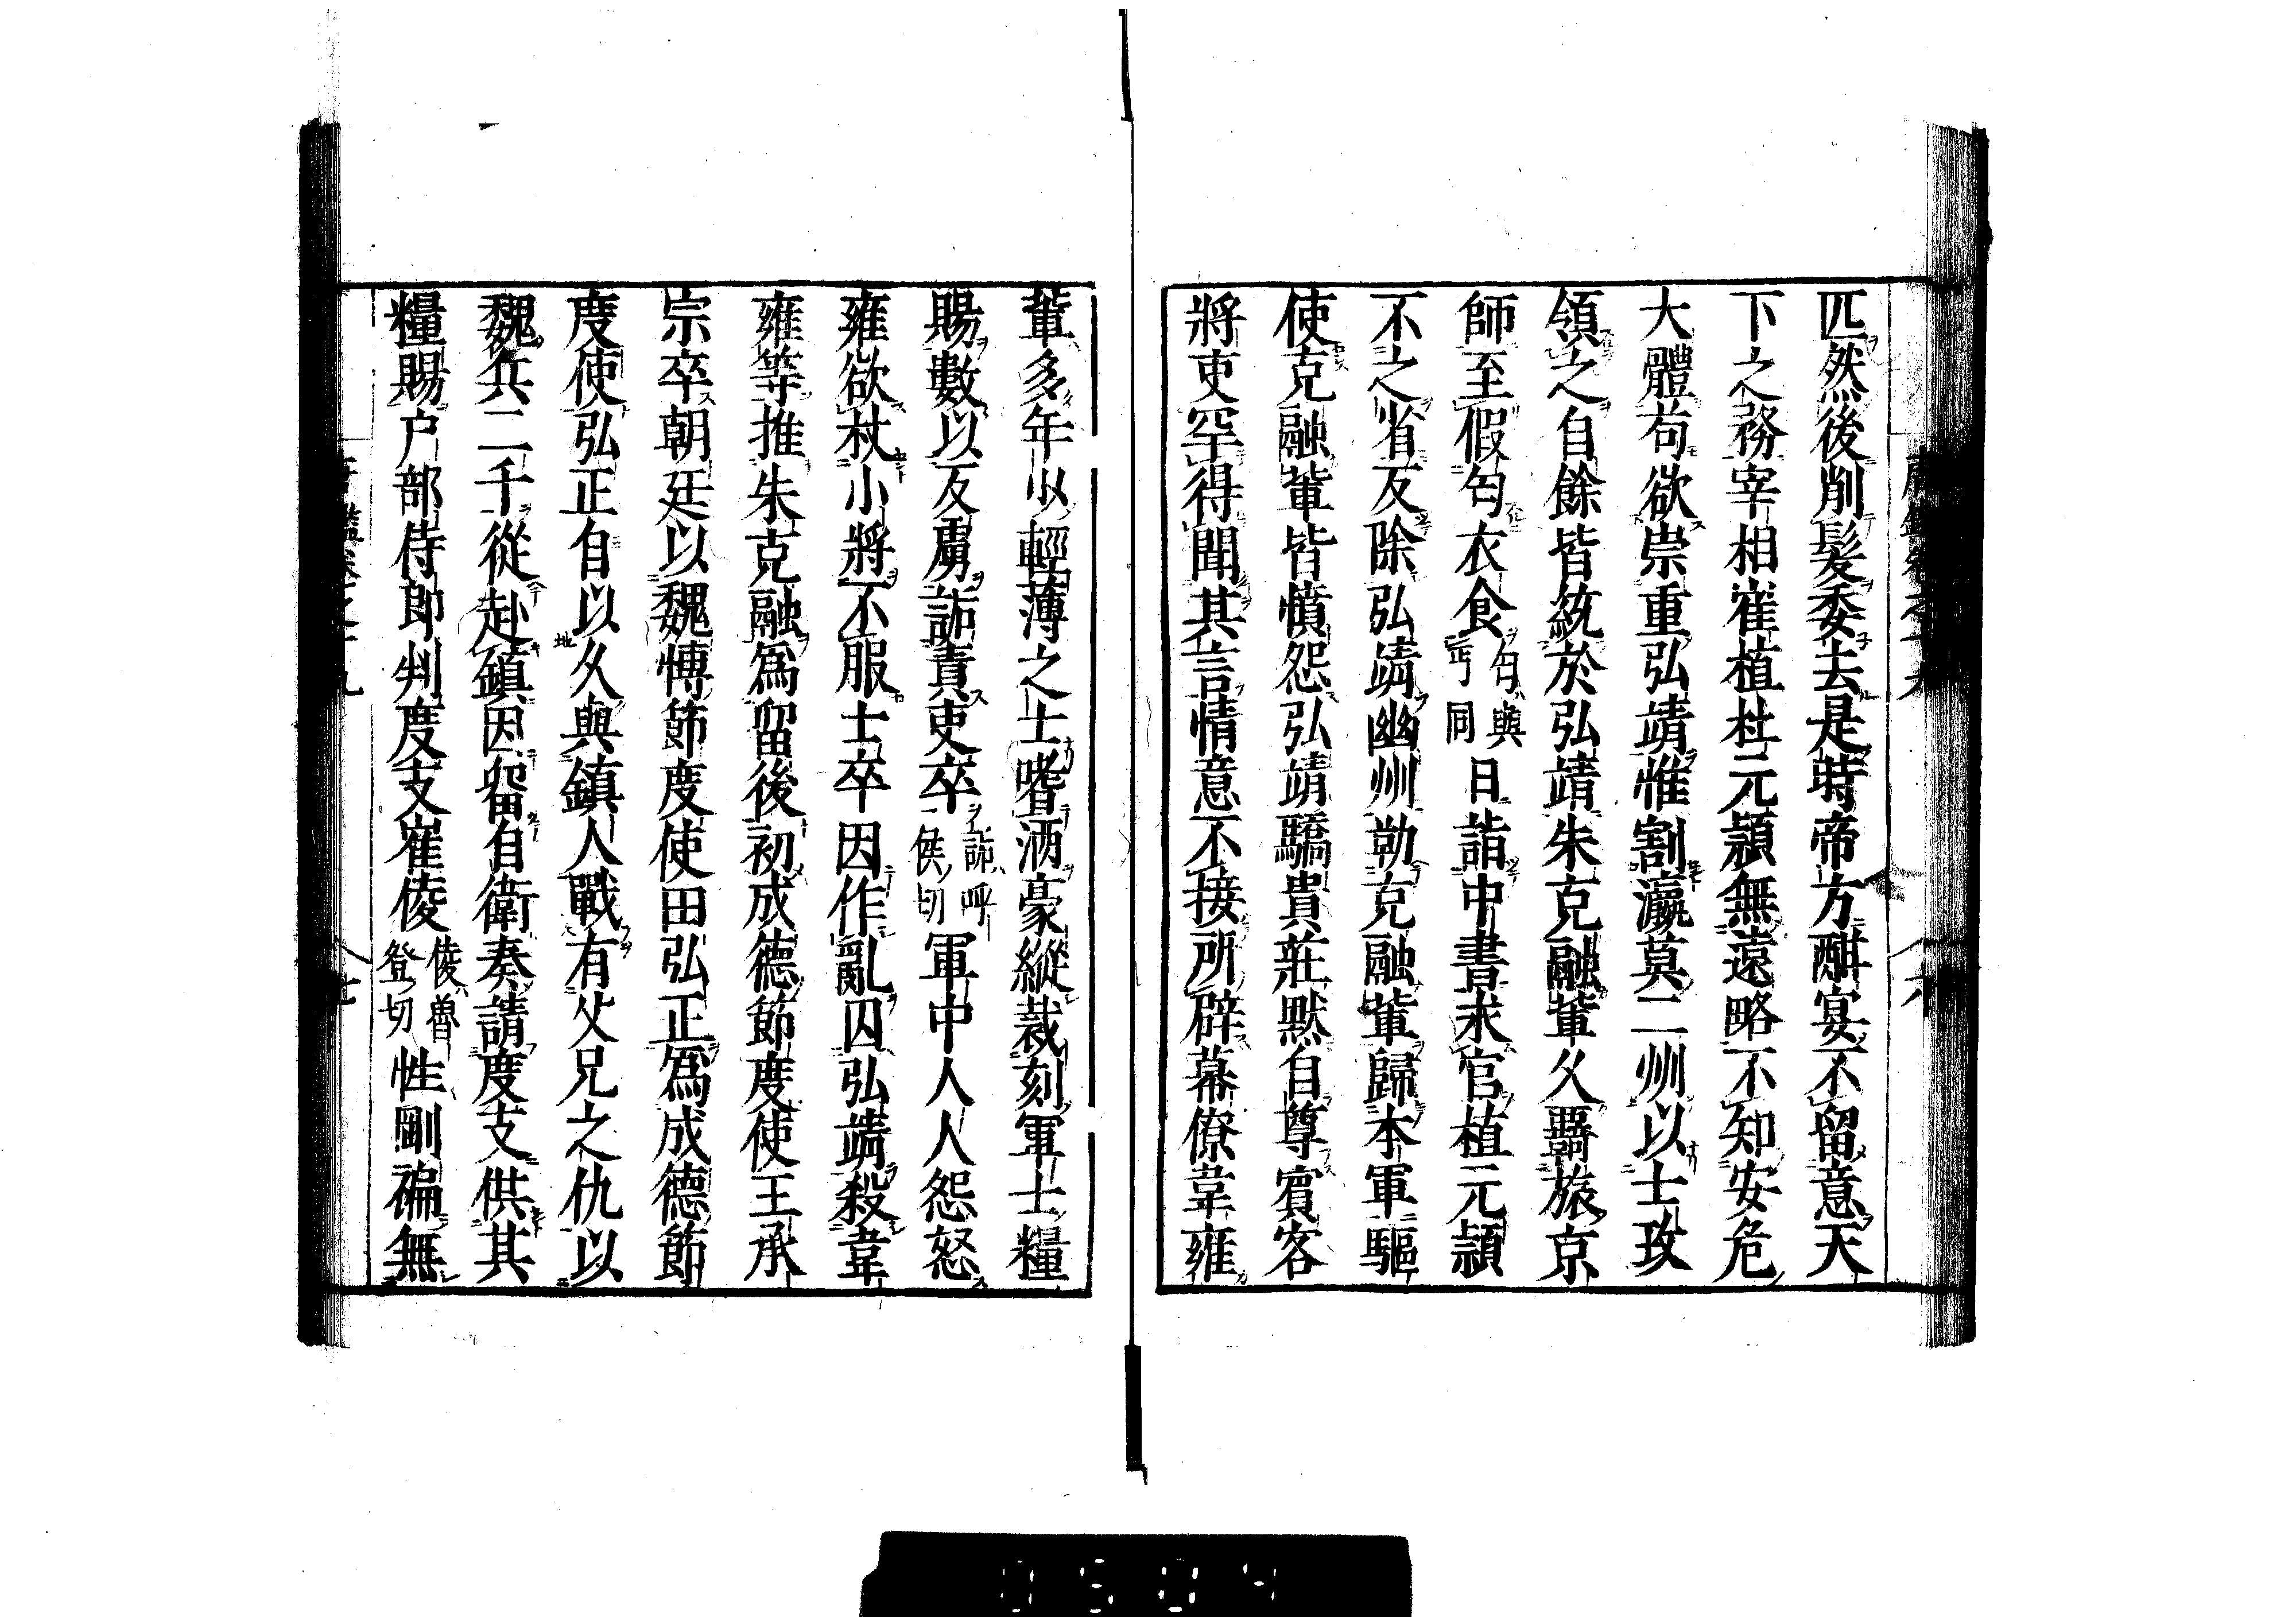 匹然後削髮委去是時帝方酣宴不留意天
下之務宰相崔植杜元潁無遠略不知安危
大體苟欲崇重弘靖惟割瀛莫二州以士玫
領之自餘皆統於弘靖朱克融輩久羇旅京
師至假匄衣食匄與丐同日詣中書求官植元潁
不之省及除弘靖幽州勅克融輩歸本軍驅
使克融輩皆憤怨弘靖驕貴莊默自尊賓客
將吏罕得聞其言情意不接所辟幕僚韋雍
輩多年少輕薄之士嗜酒豪縱裁刻軍士糧
賜數以反虜詬責吏卒詬呼侯切軍中人人怨怒
雍欲杖小將不服士卒因作亂囚弘靖殺韋
雍等推朱克融爲留後初成德節度使王承
宗卒朝廷以魏博節度使田弘正爲成德節
度使弘正自以久與鎮人戰有父兄之仇以
魏兵二千從赴鎮因留自衛奏請度支供其
糧賜户部侍郎判度支崔倰倰魯登切性剛褊無